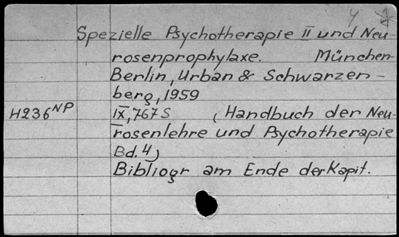 Spezielle Psychotherapie II und Neu-
rosenprophylaxe. München
Berlin, Urban & Schwarzen-
berg, 1959
H236NP IX, 767 S (Handbuch der Neu-
rosenlehre und Psychotherapie
Bd. 4)
Bibliogr am Ende der Kapit.